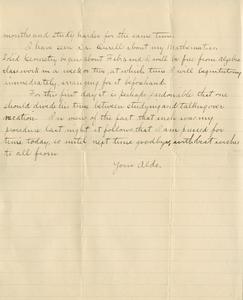 months and study harder for the same time.
I have seen Dr. Durell about my Mathematics.
Solid Geometry began about Feb 1 and I will be free from Algebra
class work in a week or two, at which time I will begin tutoring
immediately, arranging for it beforehand.
For the first day it is perhaps pardonable that one
should divide his time between studying and talking over
vacation. In view of the fact that such was my
procedure last night it follows that I am pressed for
time today, so until next time goodbye, with best wishes
to all from
Your Aldo.